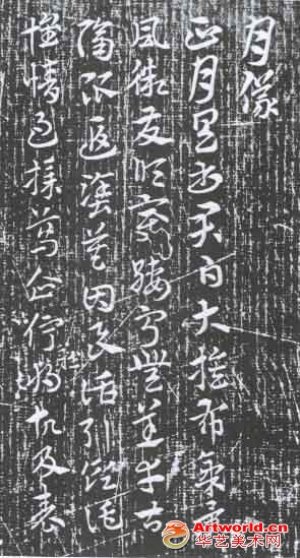 月儀
正月具書君白大蔟布氣景
風微發順變綏寧無恙幸甚
隔限遐塗莫因良話引領託
懷情過採葛企佇難將故及表
Artworld.cn
华艺美术网